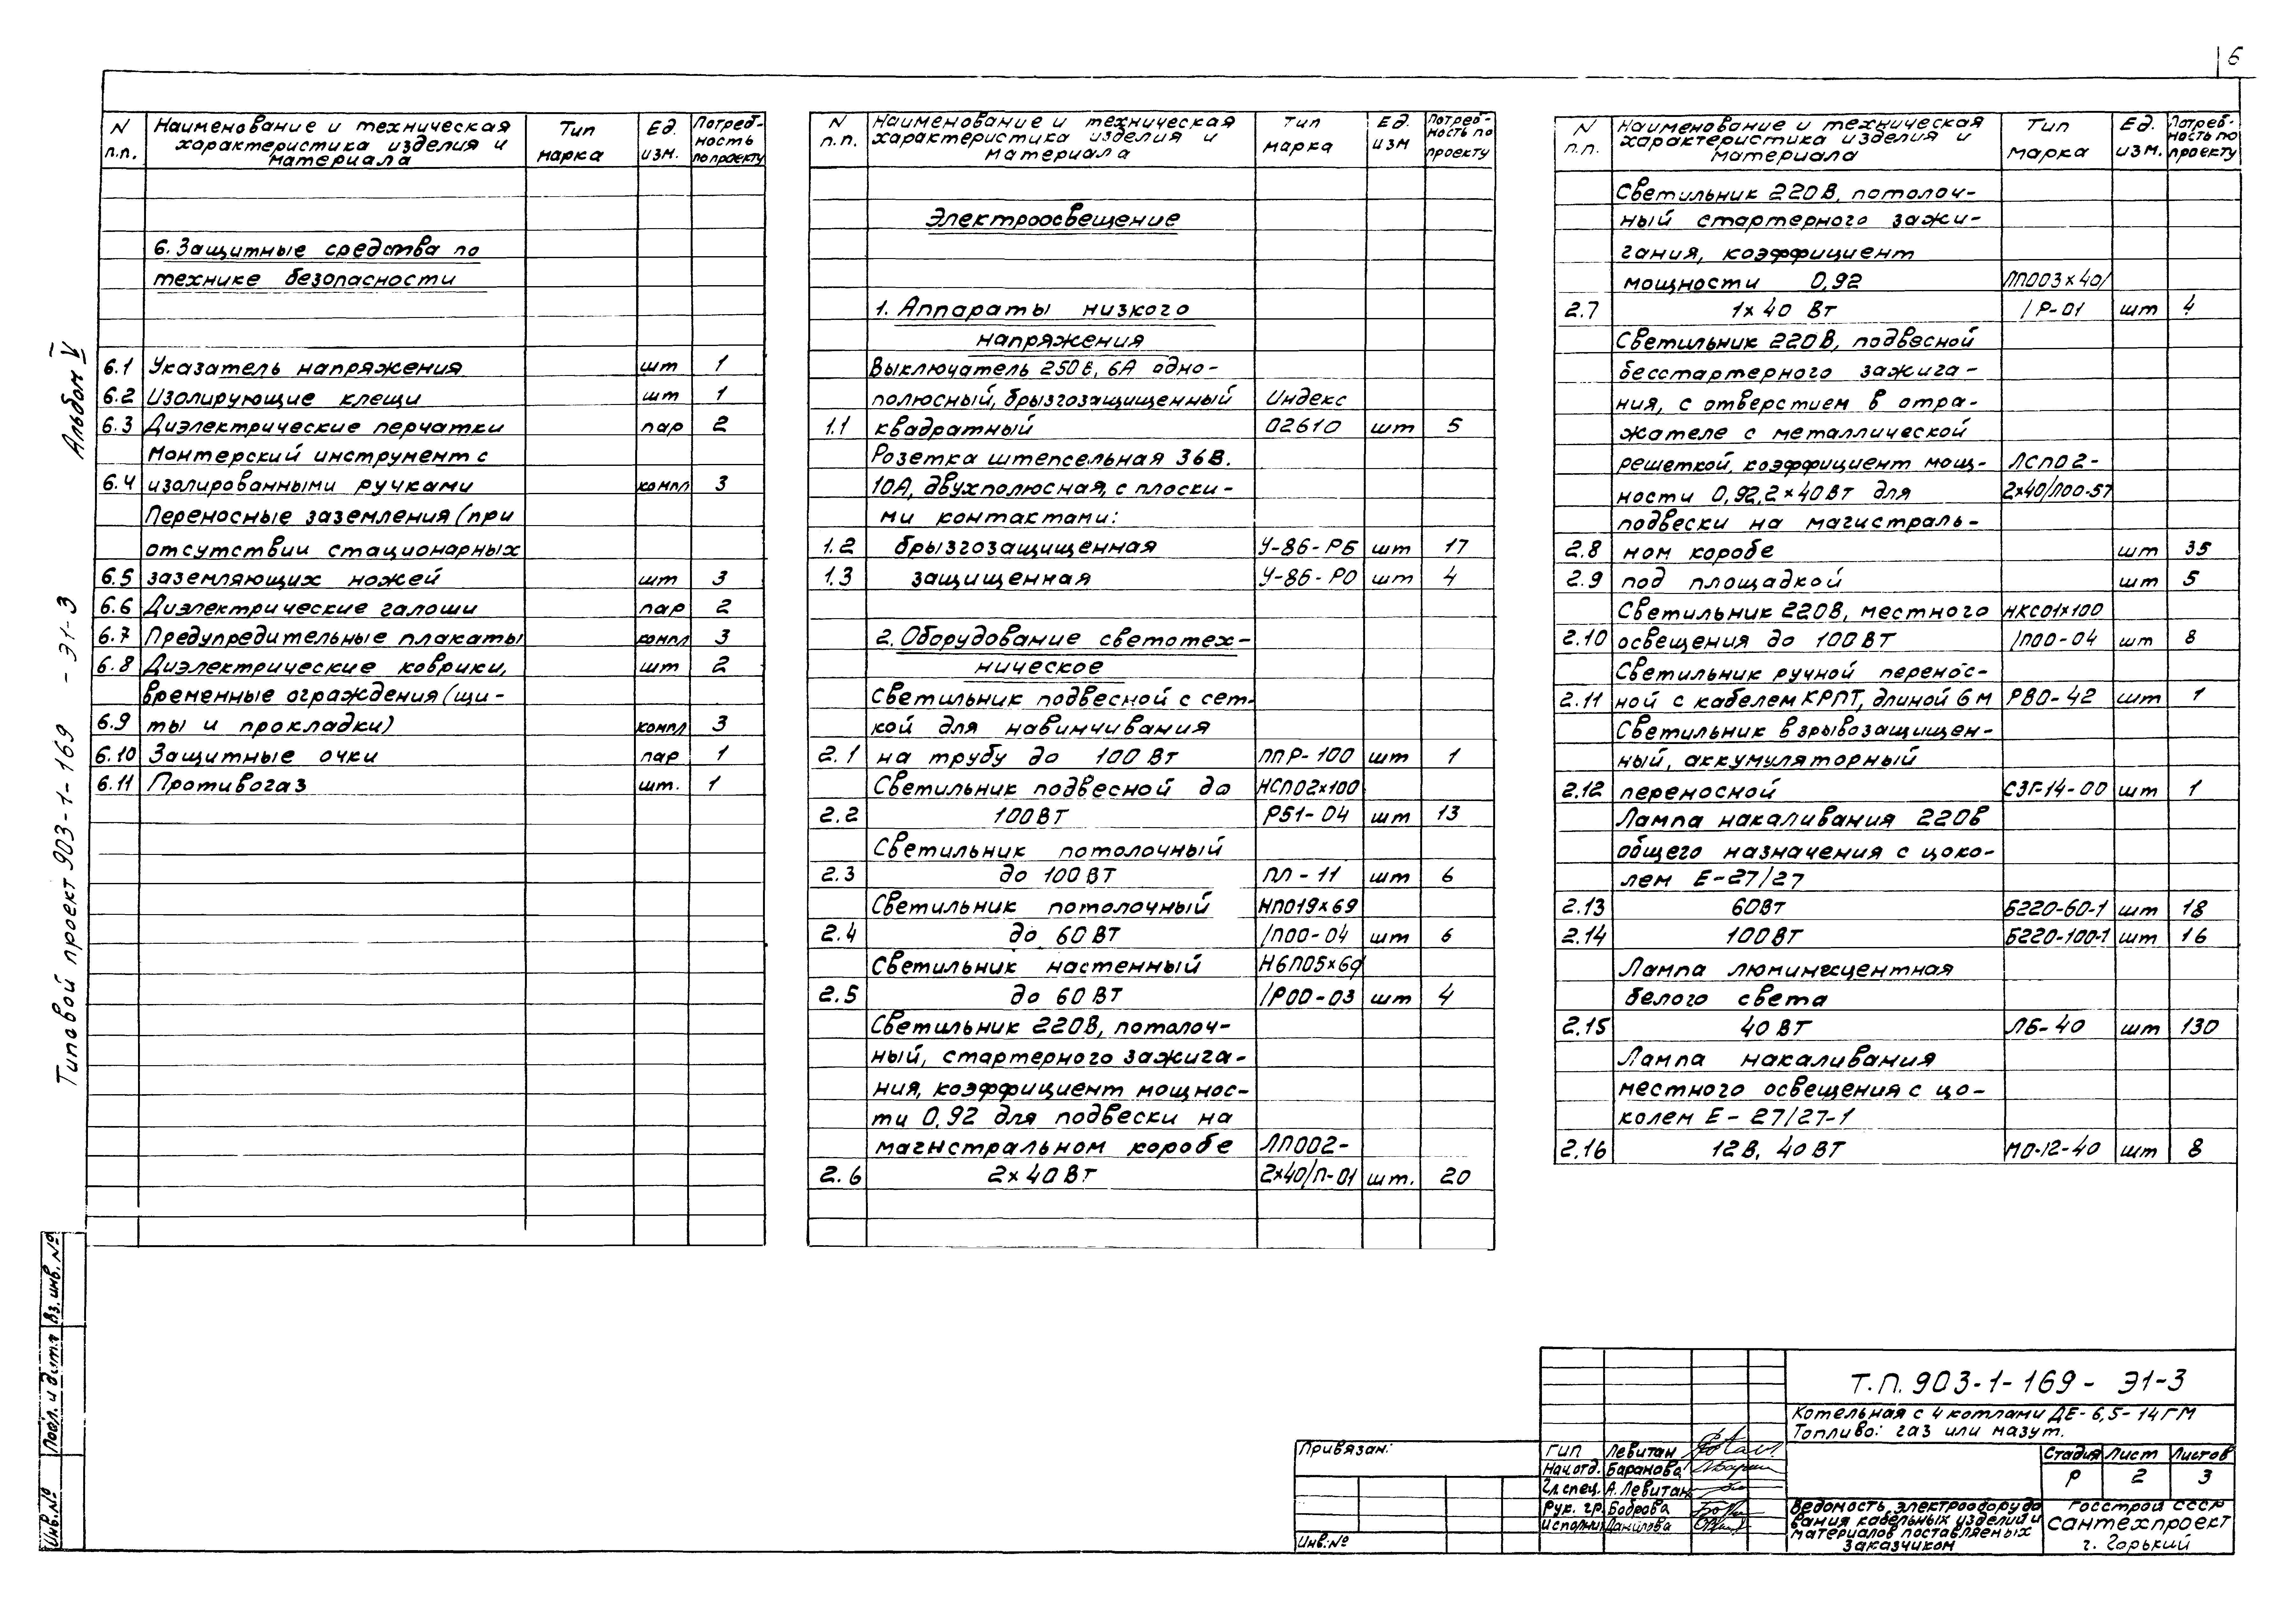 6
Альбом V
Типовой проект 903-1-169 - Э1-3
Вз. инв. №
Подл. и дата
Инв. №
N п.п. Наименование и техническая характеристика изделия и материала Тип марка Ед. изм. Потреб-ность по проекту
6. Защитные средства по
технике безопасности
6.1 Указатель напряжения шт 1
6.2 Изолирующие клещи шт 1
6.3 Диэлектрические перчатки пар 2
Монтерский инструмент с
6.4 изолированными ручками компл 3
Переносные заземления (при
отсутствии стационарных
6.5 заземляющих ножей шт 3
6.6 Диэлектрические галоши пар 2
6.7 Предупредительные плакаты компл 3
6.8 Диэлектрические коврики, шт 2
временные ограждения (щи-
6.9 ты и прокладки) компл 3
6.10 Защитные очки пар 1
6.11 Противогаз шт. 1
N п.п. Наименование и техническая характеристика изделия и материала Тип марка Ед. изм Потреб-ность по проекту
Электроосвещение
1. Аппараты низкого
напряжения
Выключатель 250в, 6А одно-
полюсный, брызгозащищенный Индекс
1.1 квадратный 02610 шт 5
Розетка штепсельная 36В.
10А, двухполюсная, с плоски-
ми контактами:
1.2 брызгозащищенная У-86-РБ шт 17
1.3 защищенная У-86-РО шт 4
2. Оборудование светотех-
ническое
Светильник подвесной с сет-
кой для навинчивания
2.1 на трубу до 100 Вт ППР-100 шт 1
Светильник подвесной до НСП02х100
2.2 100ВТ Р51-04 шт 13
Светильник потолочный
2.3 до 100ВТ ПЛ-11 шт 6
Светильник потолочный НПО19х69
2.4 до 60 ВТ /П00-04 шт 6
Светильник настенный НБП05х60
2.5 до 60 ВТ /Р00-03 шт 4
Светильник 220В, потолоч-
ный, стартерного зажига-
ния, коэффициент мощнос-
ти 0,92 для подвески на
магистральном коробе ЛПО02-
2.6 2х40ВТ 2х40/П-01 шт. 20
N п.п. Наименование и техническая характеристика изделия и материала Тип марка Ед. изм. Потреб-ность по проекту
Светильник 220В, потолоч-
ный стартерного зажи-
гания, коэффициент
мощности 0,92 ЛПО03х40/
2.7 1х40 Вт /Р-01 шт 4
Светильник 220В, подвесной
бесстартерного зажига-
ния, с отверстием в отра-
жателе с металлической
решеткой, коэффициент мощ- ЛСП02-
ности 0,92, 2х40Вт для 2х40/Л00-57
подвески на магистраль-
2.8 ном коробе шт 35
2.9 под площадкой шт 5
Светильник 220В, местного НКС01х100
2.10 освещения до 100ВТ /П00-04 шт 8
Светильник ручной перенос-
2.11 ной с кабелем КРПТ, длиной 6м РВО-42 шт 1
Светильник взрывозащищен-
ный, аккумуляторный
2.12 переносной СЗГ-14-00 шт 1
Лампа накаливания 220в
общего назначения с цоко-
лем Е-27/27
2.13 60Вт Б220-60-1 шт 18
2.14 100ВТ Б220-100-1 шт 16
Лампа люминесцентная
белого света
2.15 40ВТ ЛБ-40 шт 130
Лампа накаливания
местного освещения с цо-
колем Е-27/27-1
2.16 12В, 40ВТ МО-12-40 шт 8
Т.П. 903-1-169- Э1-3
Котельная с 4 котлами ДЕ-6,5-14ГМ
Топливо: газ или мазут.
Привязан:
Инв. №
ГИП Левитан
Нач.отд. Баранова
Гл.спец. А. Левитан
Рук. гр. Боброва
Исполни Данилова
Стадия Лист Листов
Р 2 3
Ведомость электрооборудо
вания кабельных изделий и
материалов поставляемых
заказчиком
Госстрой СССР
Сантехпроект
г. Горький